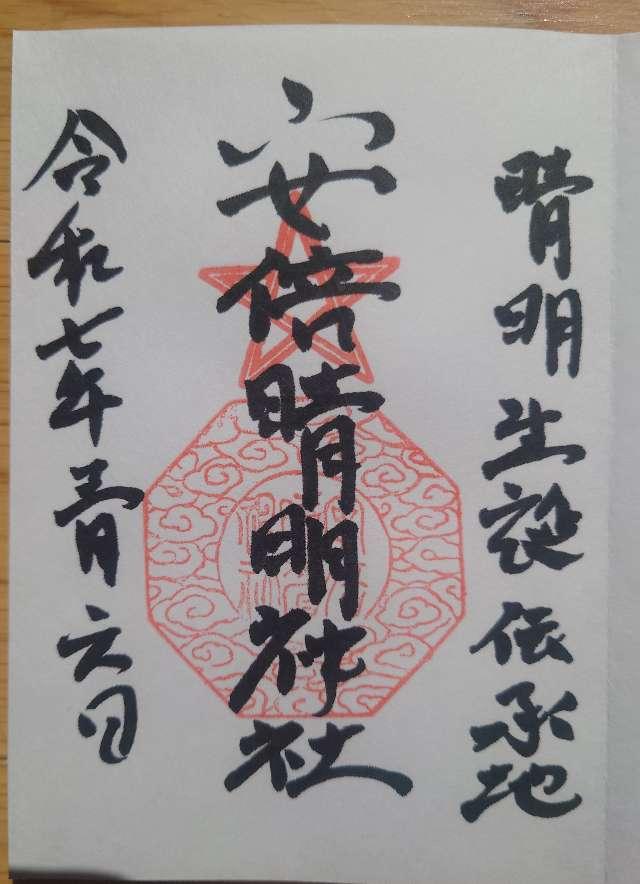 晴明生誕伝承地
安倍晴明神社
令和七年月六日